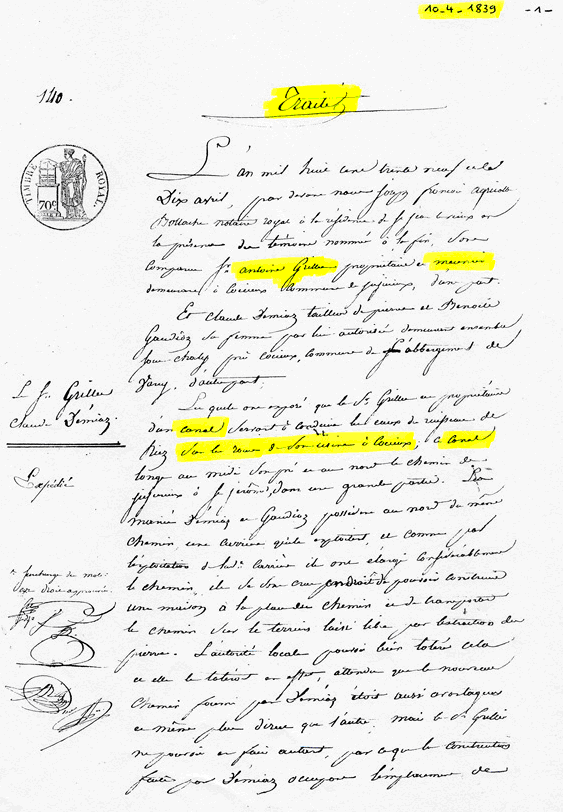 10-4-1839 -1-
140.
Traité
TIMBRE ROYAL
70c
L'an mil huit cent trente neuf et le
Dix avril, par devant nous
notaire royal à la résidence de St jean le vieux en
la présence de témoins nommé à la fin, sont
comparus Sr antoine Grillet propriétaire et meunier
demeurant à Cocieux commune de jujurieux, d'un part.
Et Claude Démiaz tailleur de pierre et Benoite
Gaudioz sa femme par lui autorisée demeurant ensemble
sous chaley près Cocieux, commune de L'abbergement de
Varey. d'autre part.
Le Sr Grillet
Claude Démiaz.
Expédié
Lesquels ont exposé que le Sr Grillet est propriétaire
d'un canal servant à conduire les eaux du ruisseau de
Riez sur la roue de son usine à Cocieux, ce Canal
longe au midi son pré et au nord le chemin de
jujurieux à St jérôme, dans une grande partie. Les
mariés Démiaz et Gaudioz possèdent au nord du même
chemin, une carrière qu'ils exploitent, et comme par
l'exploitation de ladt. carrière ils ont élargi considérablement
le chemin, ils se sont cru en droit de pouvoir construire
une maison à la place du chemin et de transporter
le chemin sur le terrein laissé libre par l'extraction du
pierre. L'autorité locale pouvait bien tolérer cela
et elle le toléroit en effet, attendu que le nouveau
chemin fourni par Démiaz étoit aussi avantageux
et même plus direct que l'autre, mais le Sr Grillet
ne pouvoit en faire autant, parce que la construction
faite par Démiaz occupoit l'emplacement de